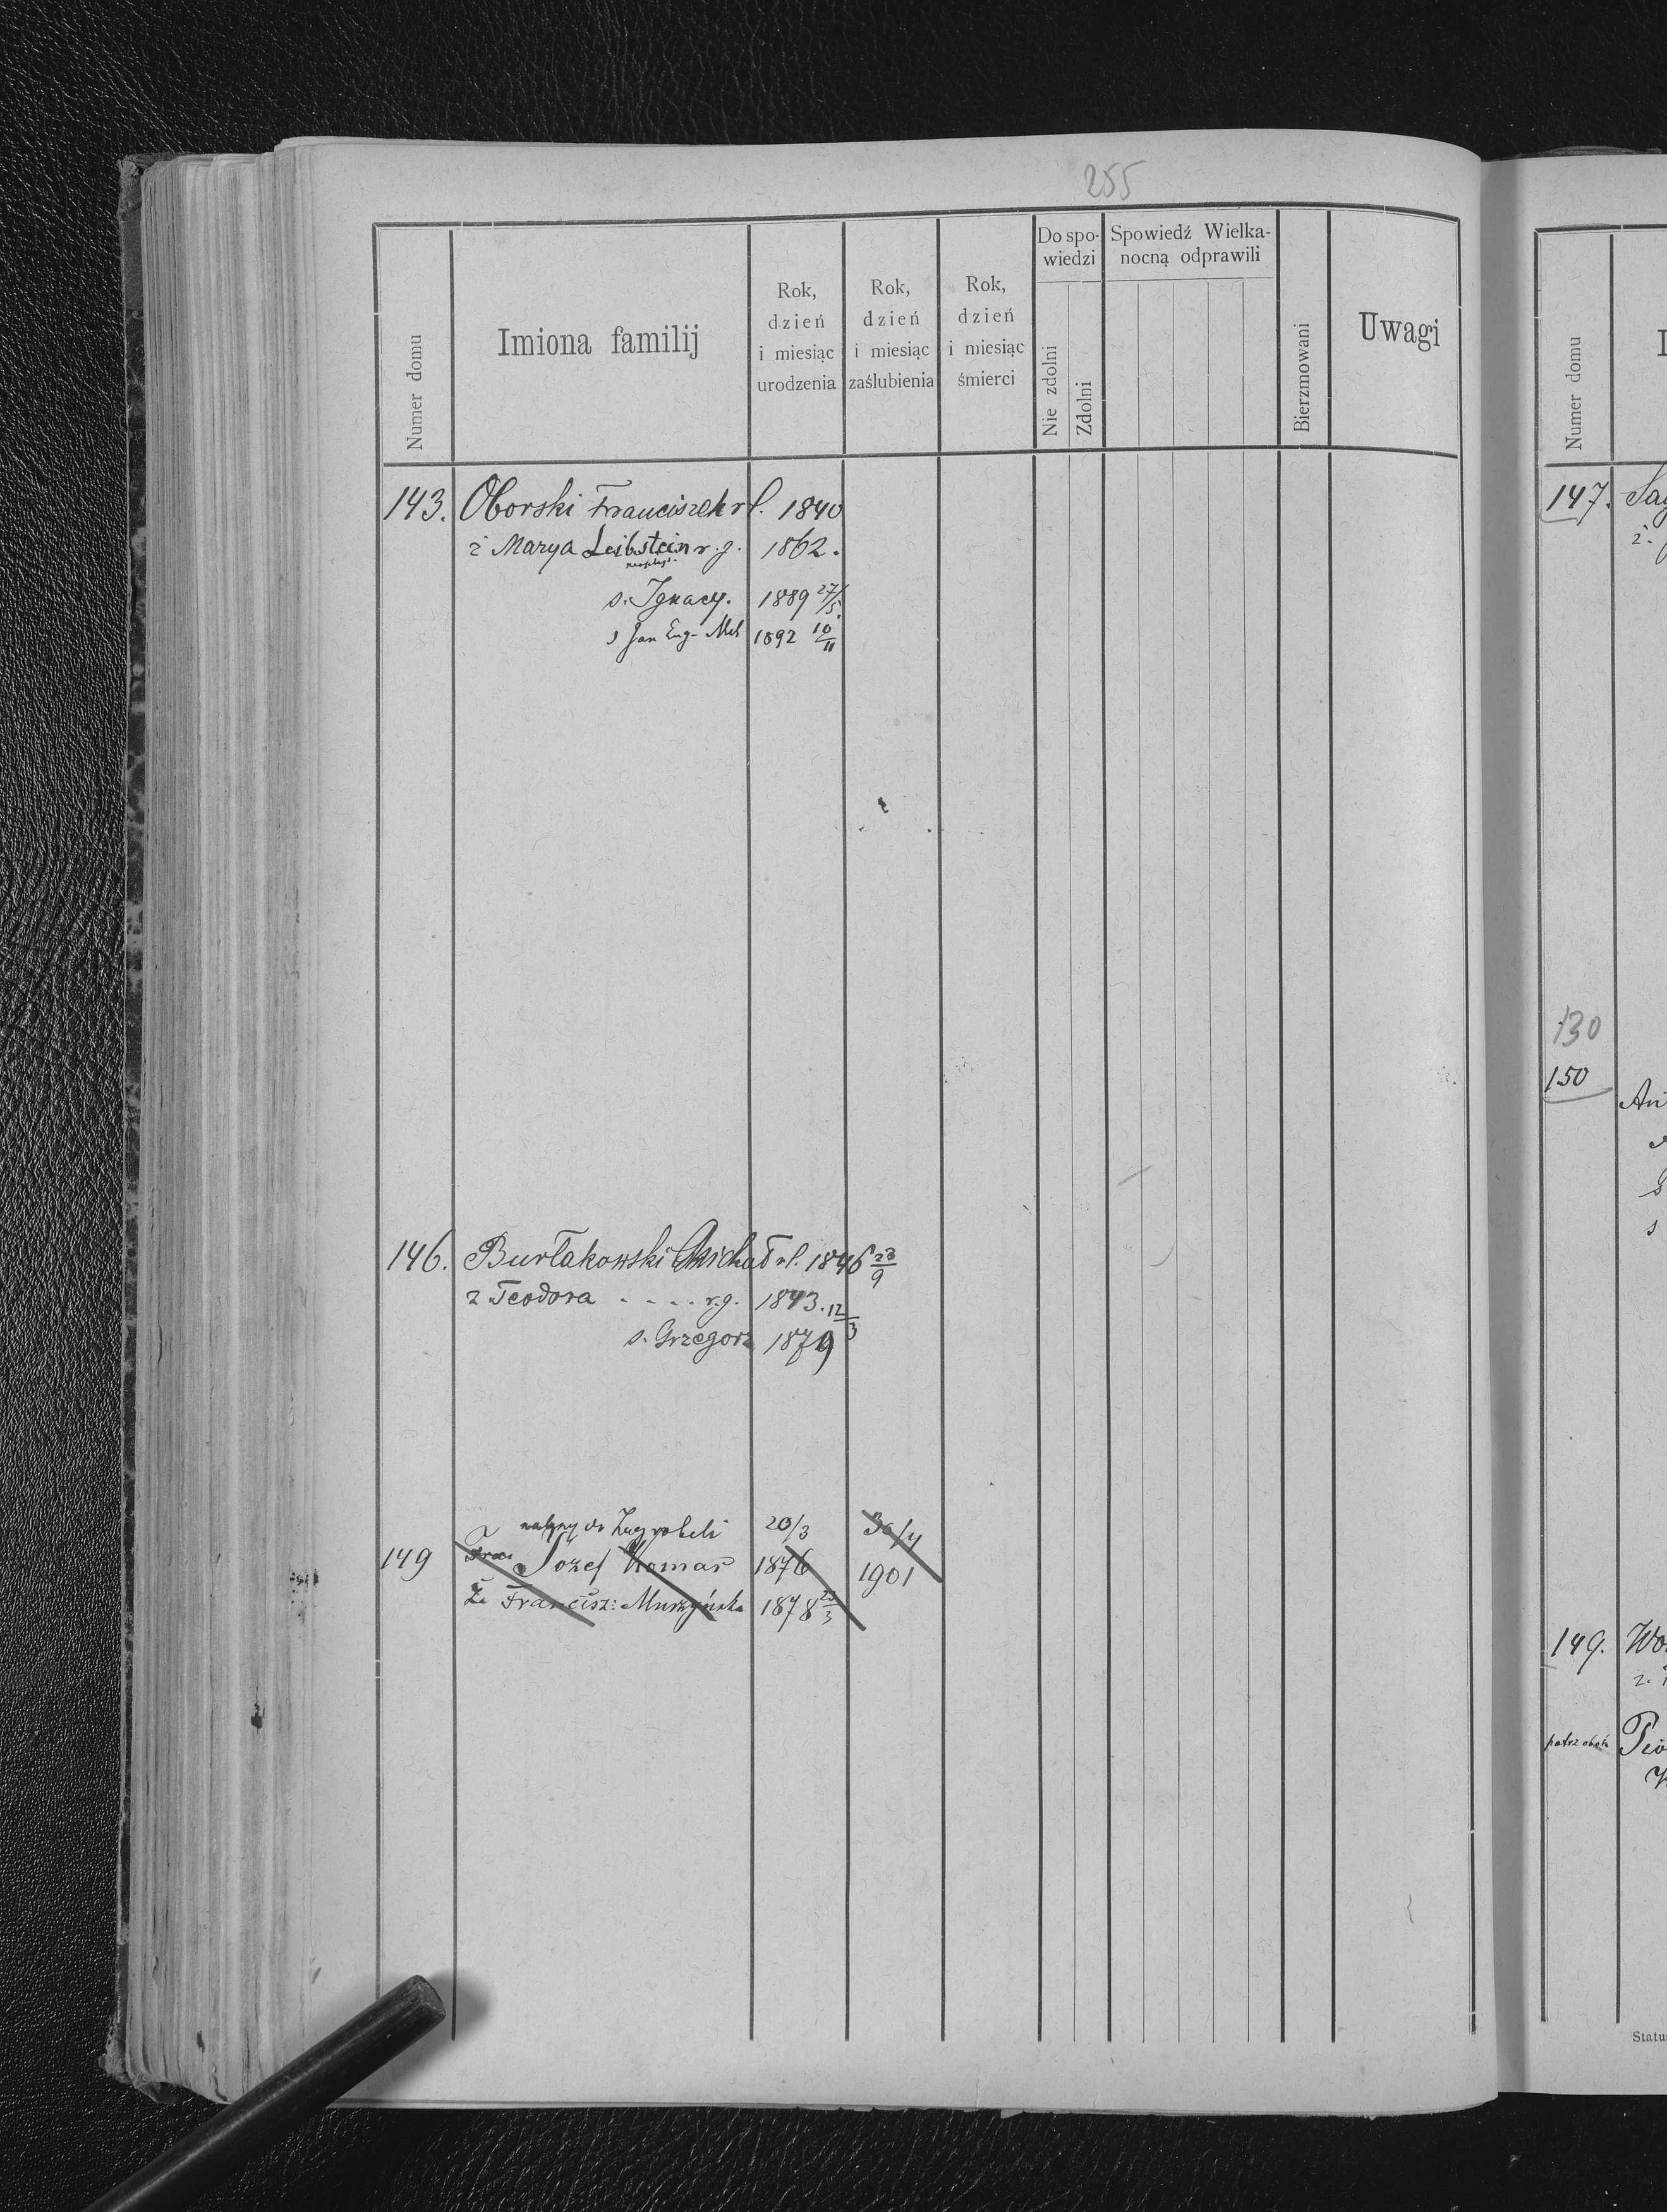 255
Numer domu
Imiona familij
Rok, dzień i miesiąc urodzenia
Rok, dzień i miesiąc zaślubienia
Rok, dzień i miesiąc śmierci
Do spo-
wiedzi
Nie zdolni
Zdolni
Spowiedź Wielka-
nocną odprawili
Bierzmowani
Uwagi
143. Oborski Franciszek rl. 1840
ż Marya Leibstein r.g. 1862.
s. Ignacy. 1889 27/5
s Jan Eug. 1892 10/11
146. Burłakowski Michał rl. 1846 23/9
ż Teodora - - - - r.g. 1843. 12/3
s. Grzegorz 1879
należy do Zagrobeli 20/3 30/4
149 Józef Komar 1876 1901
Ża Francisz: Murzyńska 1878 23/3
Numer domu
147.
ż.
130
150
An
s
s
149. Wo
ż.
patrz obok
Statu